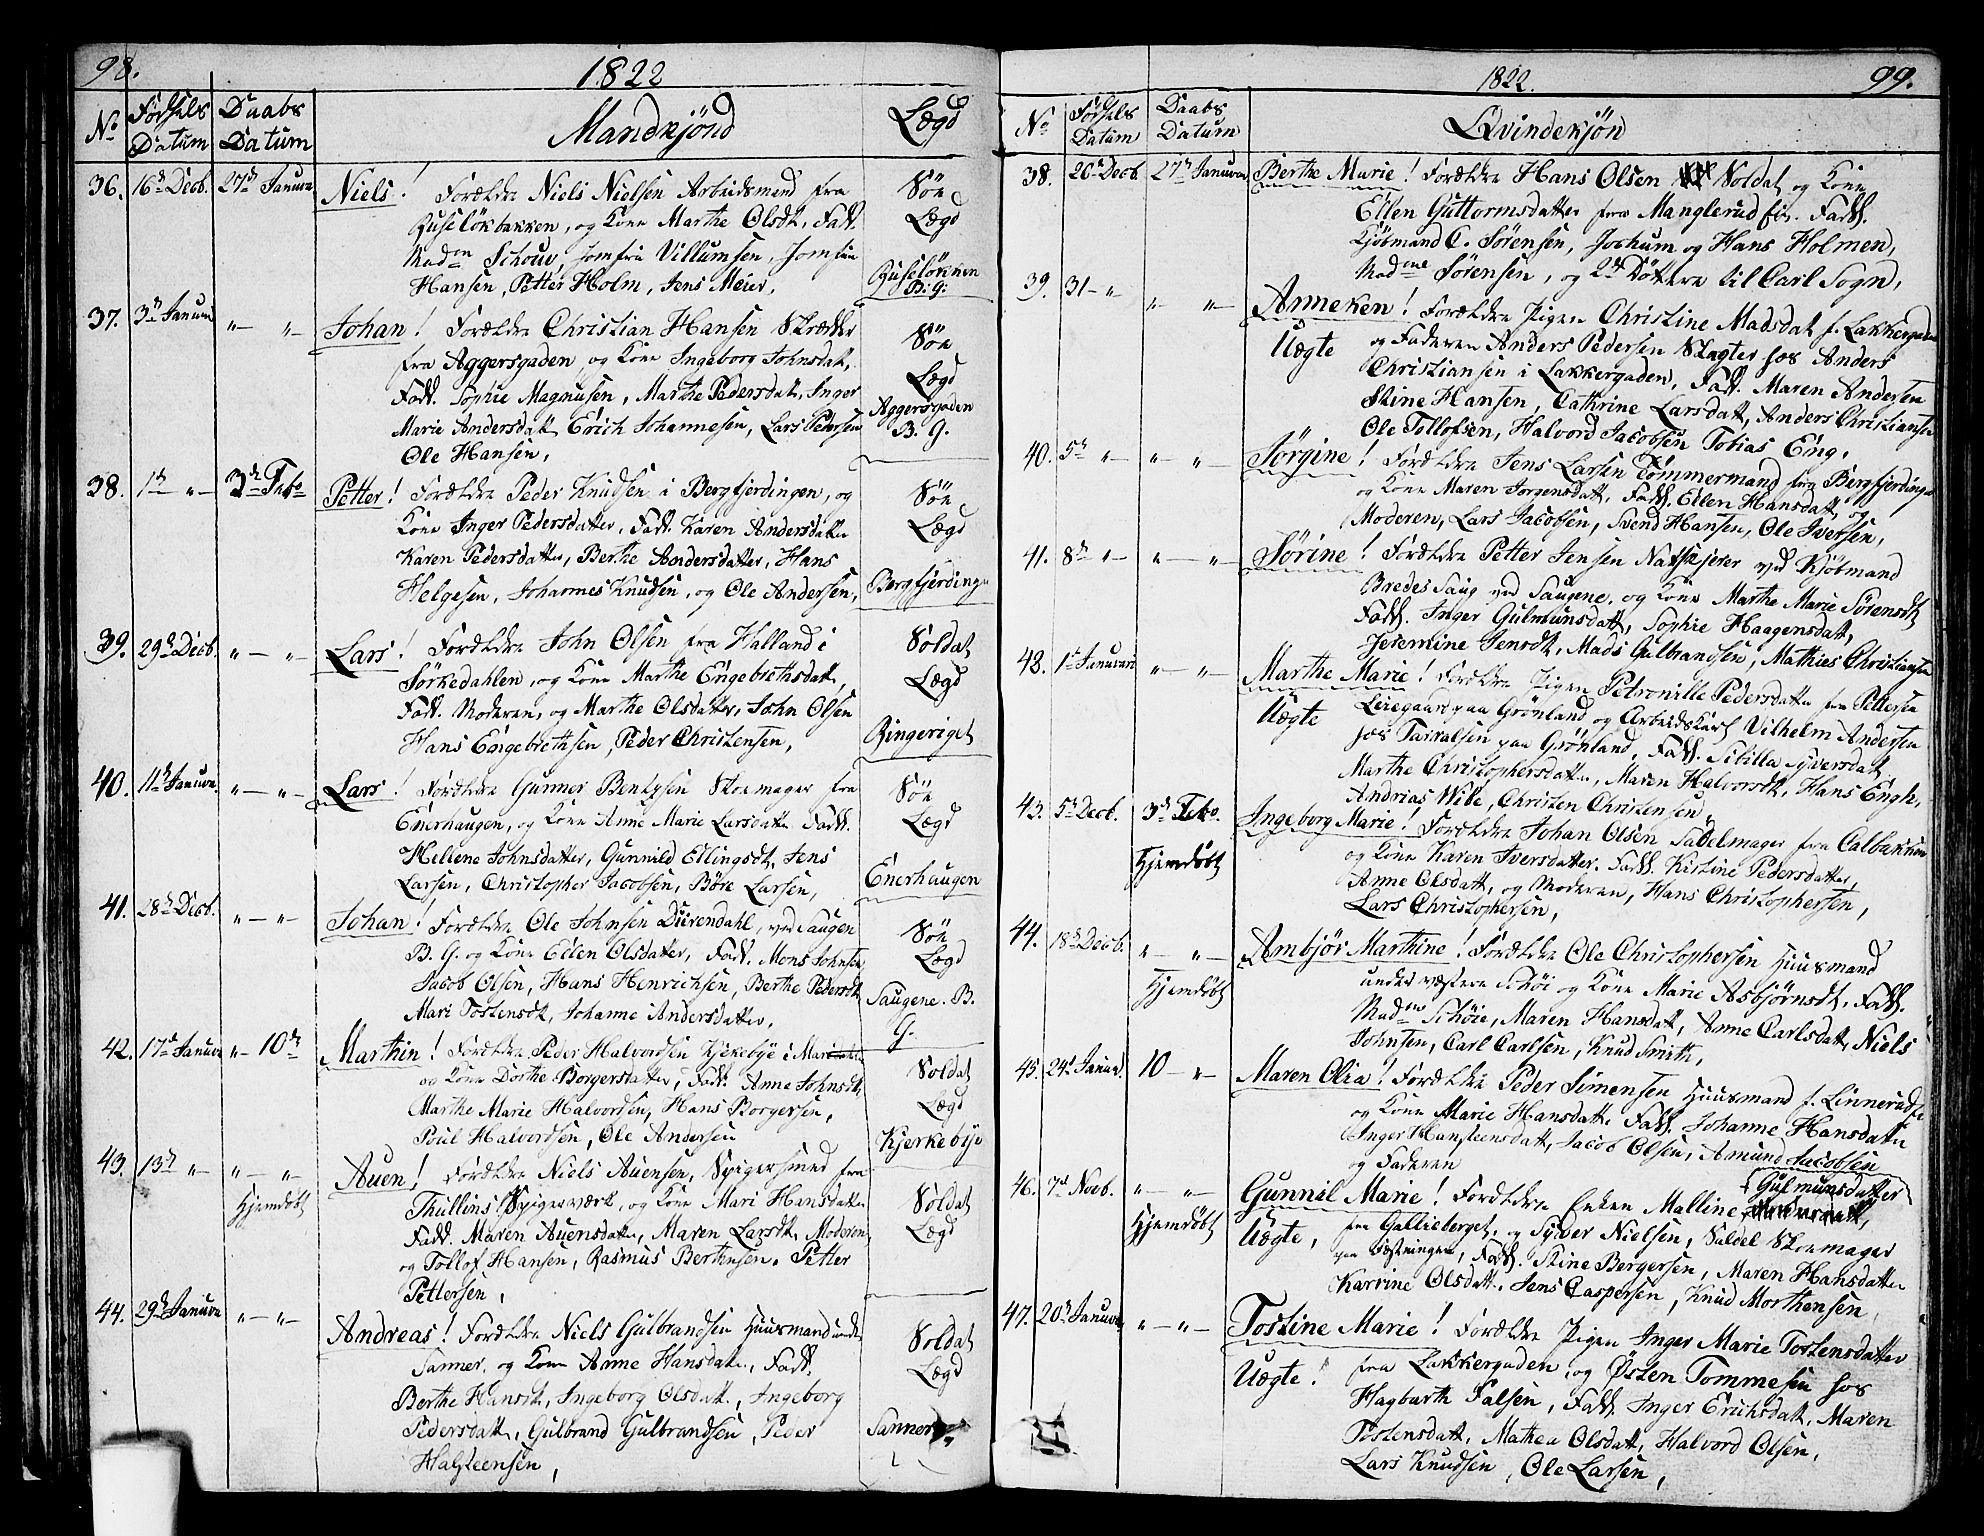 98.
1822
No Fødsels Datum Daabs Datum Mandkjönd Lægd
36. 16de Decb. 27de Januar Niels! Forældre Niels Nielsen Arbeidsmand fra
Ruseløkbakken, og Kone Marthe Olsdt, Fadd.
Madm Schouv, Jomfru Villumsen, Jomfru
Hansen, Petter Holm, Jens Meier,
Søn
Lægd
Ruseløkken
B. G.
37. 3de Januar " — " — Johan! Forældre Christian Hansen Skrædder
fra Aggersgaden, og Kone Ingeborg Johnsdat,
Fadd. Sophie Magnusen, Marthe Pedersdat, Inger
Marie Andersdatt Erich Johannesen, Lars Pedersen
Ole Hansen,
Søn
Lægd
Aggersgaden
B. G.
38. 1de " — 3de Febr. Petter! Forældre Peder Knudsen i Bergfjerdingen, og
Kone Inger Pedersdatter, Fadd. Karen Andersdatter
Karen Pedersdatter, Berthe Andersdatter, Hans
Helgesen, Johannes Knudsen, og Ole Andersen,
Søn
Lægd
Bergfjerdingen
39. 29de Decb. " — " — Lars! Forældre John Olsen fra Halland i
Sørkedahlen, og Kone Marthe Engebrethsdatt,
Fadd. Moderen, og Marthe Olsdatter, John Olsen
Hans Engebrethsen, Peder Christensen,
Soldat
Lægd
Ringeriget
40. 11de Januar. " — " — Lars! Forældre Gunner Bentzen Skoemager fra
Enerhaugen, og Kone Anne Marie Larsdatt. Fadd.
Hellene Johnsdatter, Gunnild Ellingsdt, Jens
Larsen, Christopher Jacobsen, Böre Larsen,
Søn
Lægd
Enerhaugen
41. 28de Decb. " — " — Johan! Forældre Ole Johnsen Durendahl, ved Saugen
B. G. og Kone Ellen Olsdatter, Fadd. Mons Johnsen
Jacob Olsen, Hans Henrichsen, Berthe Pedersdt
Mari Tostensdt, Johanne Andersdatter,
Søn
Lægd
Saugene. B.
G.
42. 17de Januar " — 10de Marthin! Forældre Peder Halvordsen Kjekebye i
og Kone Dorthe Borgersdatter, Fadd. Anne Johnsdt,
Marthe Marie Halvordsen, Hans Borgersen,
Poul Halvordsen, Ole Andersen
Soldat
Lægd
Kjerkebye
43. 13de " — " — " Hjemdöbt Auen! Forældre Niels Auensen, Spigersmed fra
Thullins Spigerværk, og Kone Mari Hansdatter
Fadd. Maren Auensdatter, Maren Larsdt, Moderen,
og Tollof Hansen, Rasmus Berthensen. Petter
Pettersen,
Soldat
Lægd
44. 29de Januar " — " — Andreas! Forældre Niels Gulbrandsen Huusmand under
Sanner, og Kone Anne Hansdatter, Fadd.
Berthe Hansdt, Ingeborg Olsdatt., Ingeborg
Pedersdatt, Gulbrand Gulbrandsen, Peder
Halsteensen,
Soldat
Lægd
Sanner
1822.
99.
No Fødsels Datum Daabs Datum Qvindekjön
38. 26de Decb 27de Januar Berthe Marie! Forældre Hans Olsen Soldat og Kone
Ellen Guttormsdatter fra Manglerud Fadd.
Kjøbmand C. Sørensen, Jochum og Hans Holmen,
Madme Sørensen, og 2de Døttere til Carl Sogn,
39. 31 — " " " — Anneken! Forældre Pigen Christine Madsdat f. Lakkergaden
Uægte og Faderen Anders Pedersen Slagter hos Anders
Christiansen i Lakkergaden, Fadd. Maren Andersen
Stine Hansen, Cathrine Larsdatt, Anders Christiansen
Ole Tollofsen, Halvord Jacobsen Tobias Eng,
40. 5de " — " — " — Jörgine! Forældre Jens Larsen Tømmermand fra Bergfjerdingen
og Kone Maren Jorgensdatt, Fadd. Ellen Hansdat, og
Moderen, Lars Jacobsen, Svend Hansen, Ole Iversen,
41. 8de " — " — " — Sörine! Forældre Petter Jensen Natskjerer ved Kjöbmand
Bredes Saug ved Saugene, og Kone Marthe Marie Sörensdt
Fadd. Inger Gulmunsdatt, Sophie Haagensdatt,
Jeremine Jensdt, Mads Gulbrandsen, Mathies Christiansen
42. 1de Januari " — " — Marthe Marie! Forældre Pigen Petronille Pedersdatter fra Pettersen
Uægte Leiegaard paa Grönland og Arbeidskarl Vilhelm Andersen
hos paa Grönland, Fadd. Sibilla Syversdat,
Marthe Christophersdatter, Maren Halvorsdt, Hans Engh,
Andrias Wibe, Christen Christensen,
43. 5de Decb. 3de Febr. Hjemdöbt Ingeborg Marie! Forældre Johan Olsen Sadelmager fra Calbakken
og Kone Karen Iversdatter. Fadd. Kistine Pedersdatter,
Anne Olsdatt, og Moderen, Hans Christophersen,
Lars Christophersen,
44. 18de Decb. " — " — Hjemdöbt Ambjör Marthine! Forældre Ole Christophersen Huusmand
under væstere Schöi og Kone Marie Asbjørnsdt. Fadd.
Madme Schöie, Maren Hansdatt, Anne Carlsdatt, Niels
Johnsen, Carl Carlsen, Knud Smith,
45. 24de Januar. 10 — " — Maren Olia! Forældre Peder Simensen Huusmand f. Linnerud
og Kone Marie Hansdatter Fadd. Johanne Hansdatter
Inger Hansteensdatt, Jacob Olsen, Amund Jacobsen
og Faderen
46. 7de Novb. " — " — Hjemdöbt Gunnil Marie! Forældre Enken Malline Gulmunsdatter
Uægte, fra Gallieberget, og Syver Nielsen, Saldel Skoemager
paa Fæstningen, Fadd. Stine Bergersen, Maren Hansdatter
Karrine Olsdatt. Jens Caspersen, Knud Morthensen,
47. 20de Januar " — " — Tostine Marie! Forældre Pigen Inger Marie Tostensdatter
Uægte! fra Lakkergaden, og Østen Tommesen hos
Hagbarth Falsen, Fadd. Inger Erichsdatt, Maren
Tostensdatt, Mathea Olsdatt, Halvord Olsen,
Lars Knudsen, Ole Larsen,